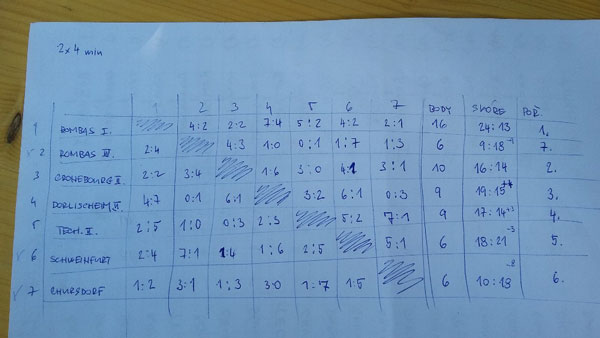 2 x 4 min
1 2 3 4 5 6 7 BODY SKÓRE POŘ.
1 ROMBAS I. 4:2 2:2 7:4 5:2 4:2 2:1 16 24:13 1.
2 ROMBAS III. 2:4 4:3 1:0 0:1 1:7 1:3 6 9:18 7.
3 CRONEBOURG II. 2:2 3:4 1:6 3:0 4:1 3:1 10 16:14 2.
4 DORLISCHEIM II. 4:7 0:1 6:1 3:2 6:1 0:3 9 19:15 3.
5 TECH. II. 2:5 1:0 0:3 2:3 5:2 7:1 9 17:14 4.
6 SCHWEINFURT 2:4 7:1 1:4 1:6 2:5 5:1 6 18:21 -3 5.
7 BHURSDORF 1:2 3:1 1:3 3:0 1:7 1:5 6 10:18 6.